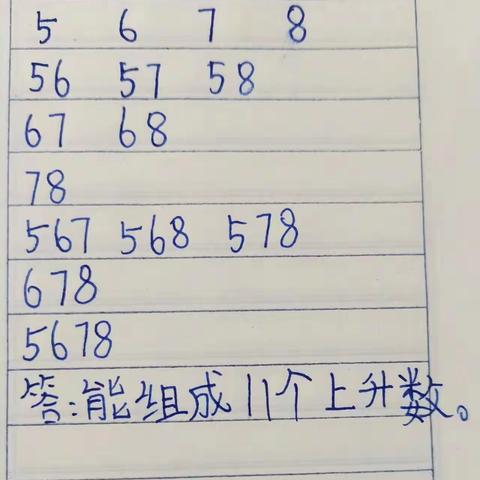 5 6 7 8
56 57 58
67 68
78
567 568 578
678
5678
答:能组成11个上升数。